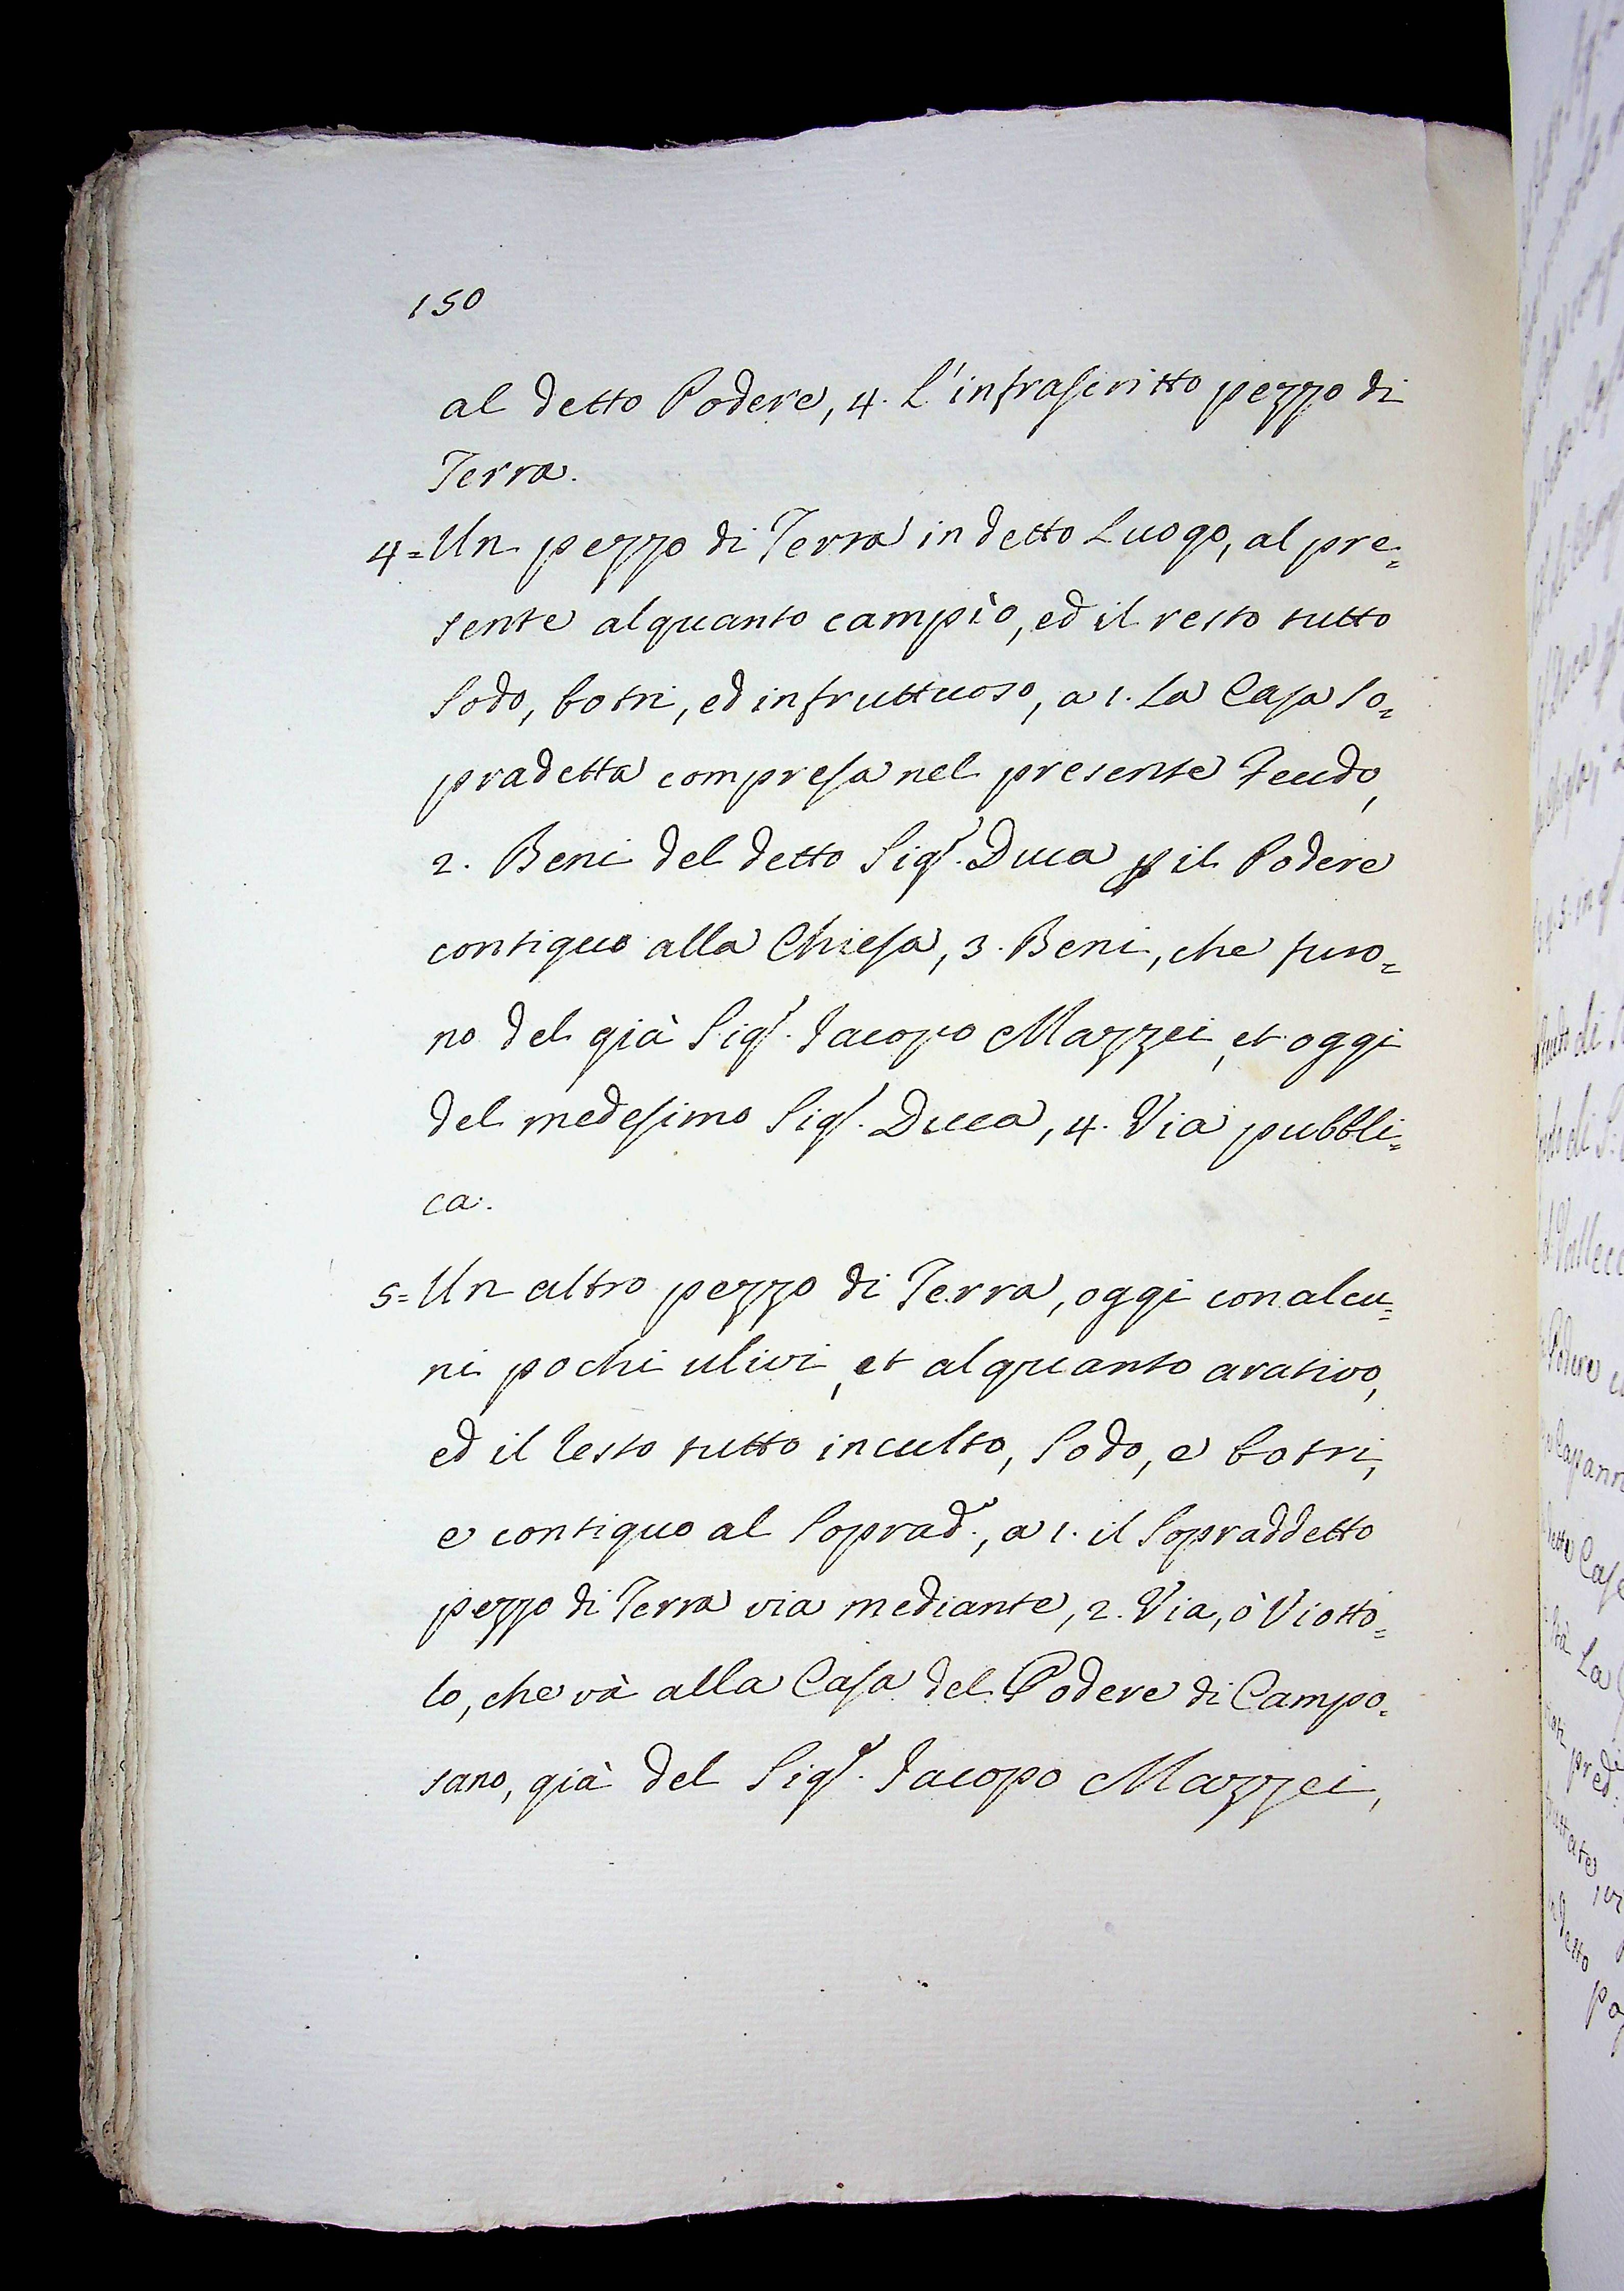 150
al detto Podere, 4. L'infrascritto pezzo di
Terra.
4= Un pezzo di Terra in detto Luogo, al pre=
sente alquanto campìo, ed il resto tutto
Sodo, botri, ed infruttuoso, a 1. La Casa So=
pradetta compresa nel presente Feudo,
2. Beni del detto Sigr. Duca p il Podere
contiguo alla Chiesa, 3. Beni, che furo=
no del già Sigr. Iacopo Mazzei, et oggi
del medesimo Sigr. Duca, 4. Via pubbli=
ca.
5= Un altro pezzo di Terra, oggi con alcu=
ni pochi ulivi, et alquanto arativo,
ed il resto tutto inculto, Sodo, e botri,
e contiguo al Soprad.o, a 1. il Sopraddetto
pezzo di Terra via mediante, 2. Via, ò Viotto=
lo, che và alla Casa del Podere di Campo=
sano, già del Sigr. Iacopo Mazzei,